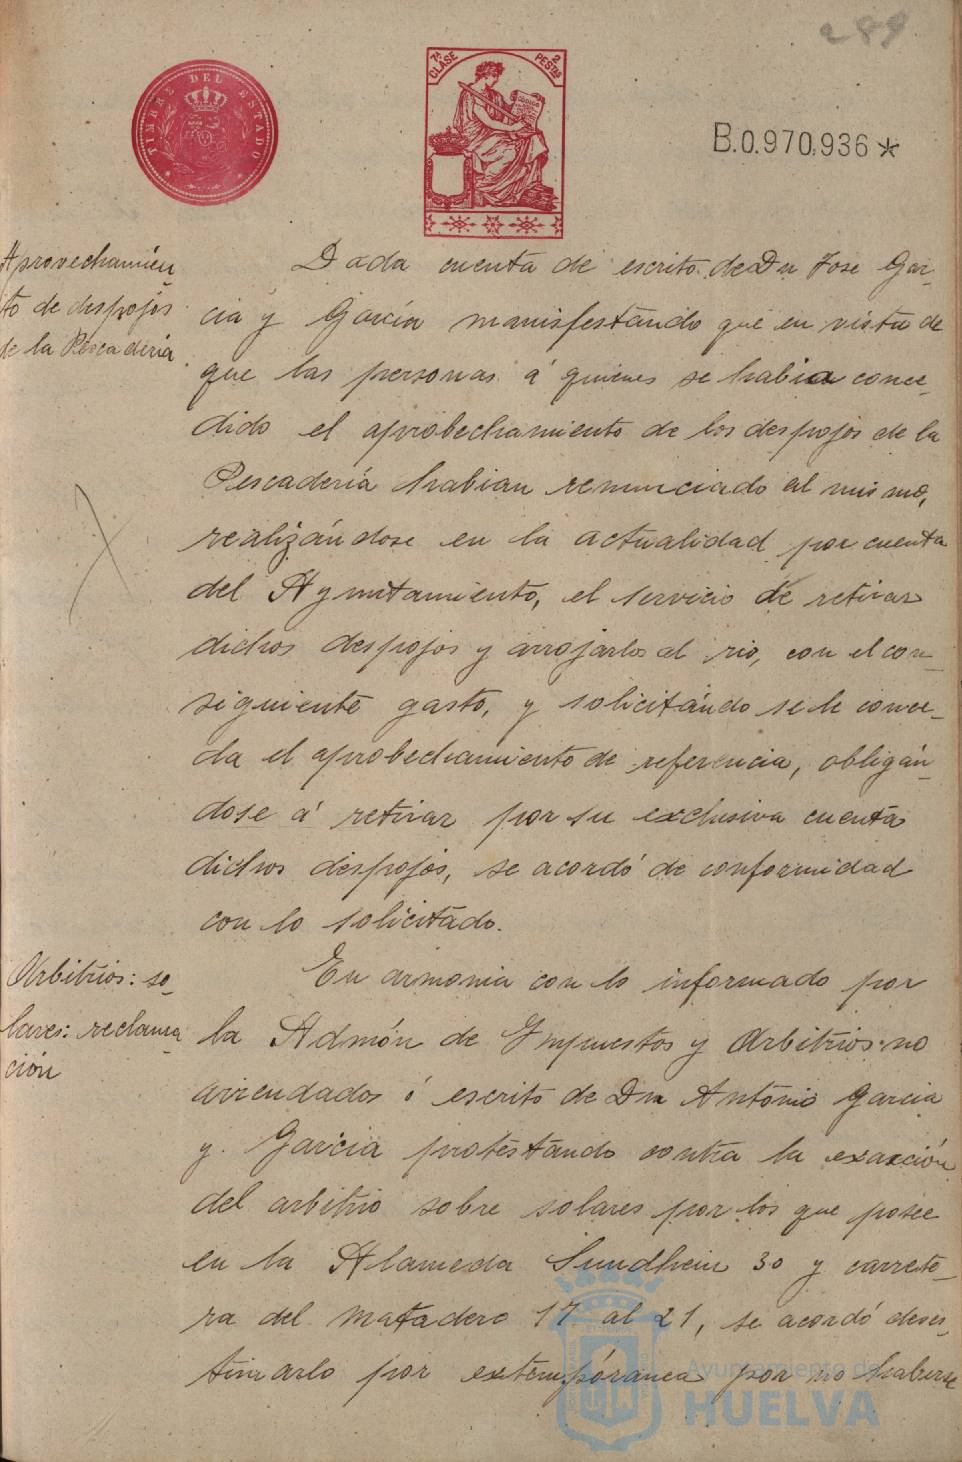 289
TIMBRE DEL ESTADO
7ª CLASE
2 PESTAS
B.0.970,936 *
Aprovechamien
to de despojos
de la Pescaderia
Dada cuenta de escrito de Dn Jose Gar-
cia y Garcia manisfestando que en vista de
que las personas á quienes se habia conce-
dido el aprobechamiento de los despojos de la
Pescadería habian renunciado al mismo,
realizándose en la actualidad por cuenta
del Ayuntamiento, el servicio de retirar
dichos despojos y arrojarlos al rio, con el con-
siguiente gasto, y solicitándo se le conce-
da el aprobechamiento de referencia, obligán-
dose á retirar por su exclusiva cuenta
dichos despojos, se acordó de conformidad
con lo solicitado.
Arbitrios: so-
lares: reclama-
ción
En armonia con lo informado por
la Admón de Impuestos y Arbitrios no
arrendados ó escrito de Dn Antonio Garcia
y Garcia protestando contra la exacción
del arbitrio sobre solares por los que posee
en la Alameda Sundhein 30 y carrete-
ra del matadero 17 al 21, se acordó deses-
timarlo por extemporanea por no haberse
Ayuntamiento de
HUELVA